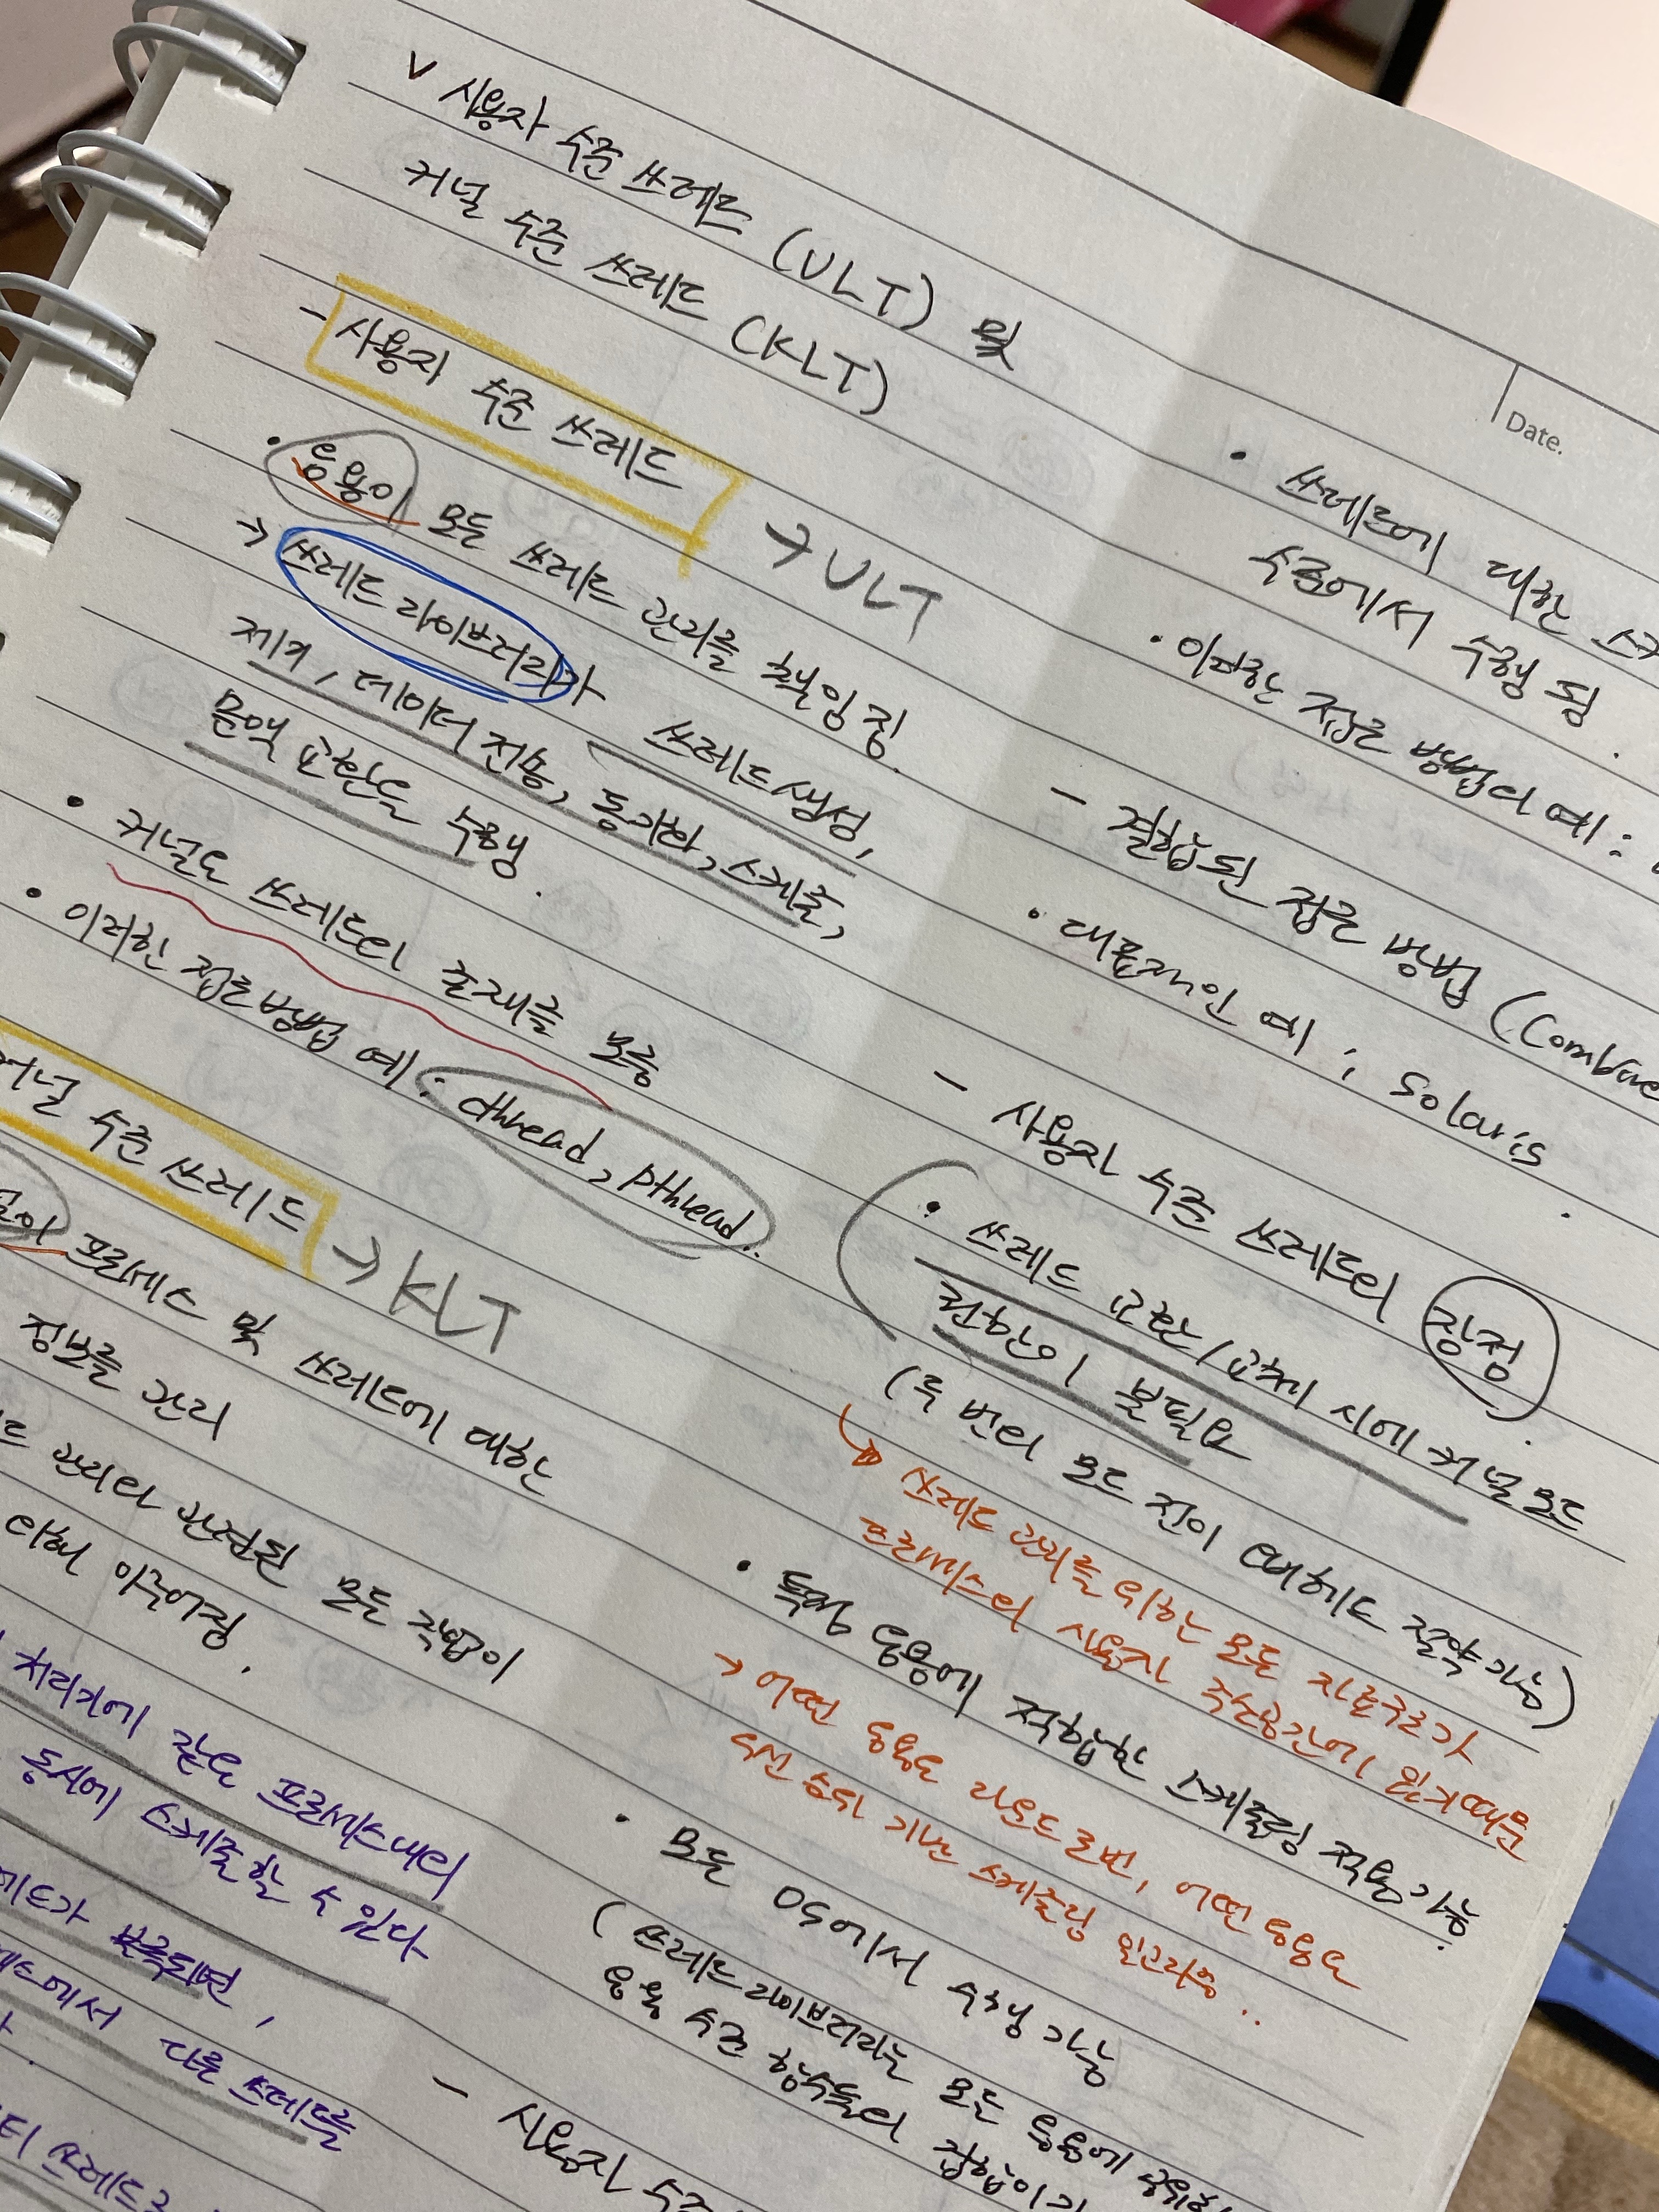 v 사용자 수준 쓰레드 (ULT) 및
커널 수준 쓰레드 (KLT)
- 사용자 수준 쓰레드 → ULT
• 응용이 모든 쓰레드 관리를 책임짐.
→ 쓰레드 라이브러리가 쓰레드생성,
제거, 데이터 전송, 동기화, 스케줄,
문맥 교환도 수행.
• 커널은 쓰레드의 존재를 모름
• 이러한 접근방법 예: cthread, pthread..
커널 수준 쓰레드 → KLT
프로세스 및 쓰레드에 대한
정보를 관리
관리와 관련된 모든 작업이
의해 이루어짐.
처리기에 같은 프로세스내의
동시에 스케줄할 수 있다
보록되면,
에서 다른 쓰레드를
Date.
• 쓰레드에 대한
수준에서 수행 됨.
• 이러한 접근 방법의 예:
- 결합된 접근 방법 (Combine
• 대표적인 예 ; Solaris.
- 사용자 수준 쓰레드의 장점
• 쓰레드 교환/교체 시에 커널 모드
권한이 불필요.
(두 번의 모드 전이 오버헤드 절약 가능)
→ 쓰레드 관리를 위한 모든 자료구조가
프로세스의 사용자 주소공간에 있기때문
• 특정 응용에 적합한 스케줄링 적용 가능.
→ 어떤 응용은 라운드 로빈, 어떤 응용은
우선 순위 기반 스케줄링 알고리즘..
• 모든 OS에서 수행 가능
(쓰레드 라이브러리는 모든 응용에
응용 수준 함수들의 집합이기
- 사용자 수준